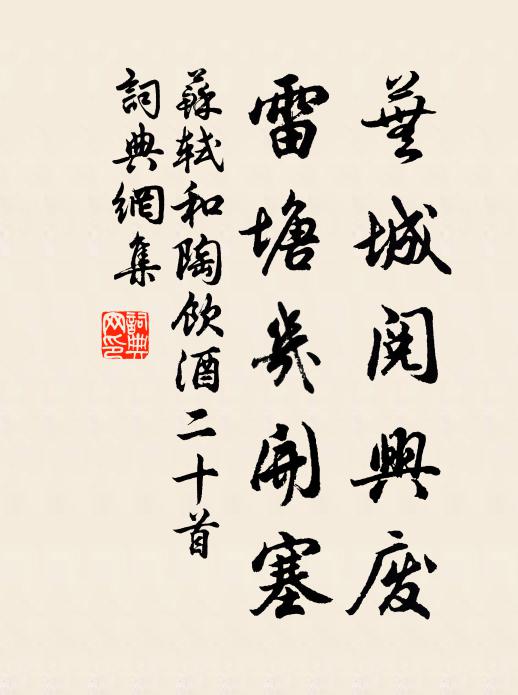 蕪城閱興廢
雷塘幾開塞
蘇軾和陶飲酒二十首
詞典網集
詞典
网印